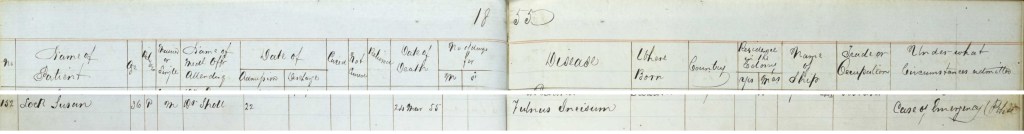 18 55
No
Name of Patient
Age
Married or Single
Name of Medl Off Attending
Date of
Admission
Cured
Not
Relieved
Date of Death
No of days
for
M
Disease
Where Born
Country
Residence in the Colony
Yrs
Name of Ship
Trade or Occupation
Under what Circumstances admitted
152 Lock Susan 36 P M Dr Sholl 22 24 Mar 55 Vulnus Incisum Case of Emergency